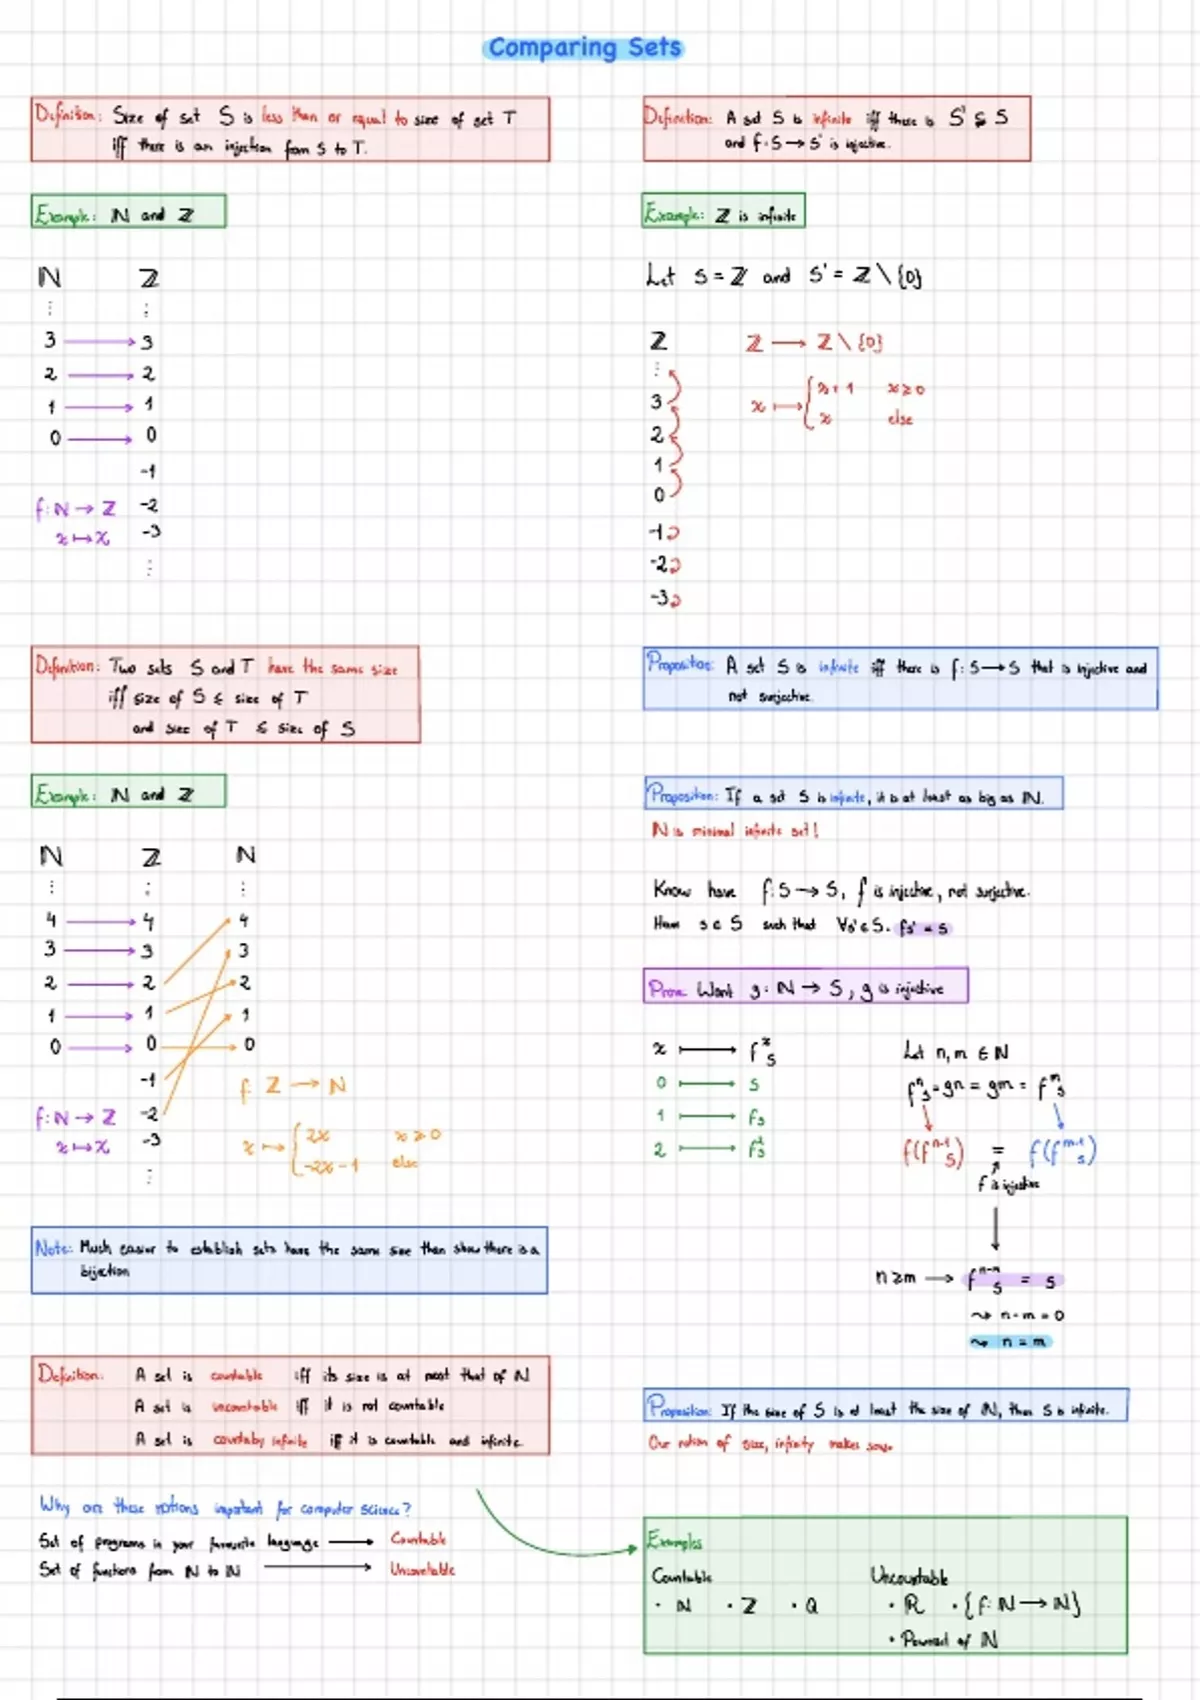 Comparing Sets
Definition: Size of set S is less than or equal to size of set T
iff there is an injection from S to T.
Example: ℕ and ℤ
ℕ ℤ
⋮ ⋮
3 ⟶ 3
2 ⟶ 2
1 ⟶ 1
0 ⟶ 0
-1
f: ℕ → ℤ -2
x ↦ x -3
⋮
Definition: Two sets S and T have the same size
iff size of S ≤ size of T
and size of T ≤ size of S
Example: ℕ and ℤ
ℕ ℤ ℕ
⋮ ⋮ ⋮
4 ⟶ 4 4
3 ⟶ 3 3
2 ⟶ 2 2
1 ⟶ 1 1
0 ⟶ 0 ⟶ 0
-1 f: ℤ ⟶ ℕ
f: ℕ → ℤ -2
x ↦ x -3
⋮
x ↦ { 2x x ≥ 0
-2x-1 else
Note: Much easier to establish sets have the same size than show there is a
bijection
Definition: A set is countable iff its size is at most that of ℕ
A set is uncountable iff it is not countable
A set is countaby infinite iff it is countable and infinite.
Why are these notions important for computer science?
Set of programs in your favourite language ⟶ Countable
Set of functions from ℕ to ℕ ⟶ Uncountable
Definition: A set S is infinite iff there is S' ⊊ S
and f: S → S' is injective.
Example: ℤ is infinite
Let S = ℤ and S' = ℤ \ {0}
ℤ ℤ ⟶ ℤ \ {0}
⋮
3 x ↦ { x+1 x ≥ 0
2 x else
1
0
-1
-2
-3
Proposition: A set S is infinite iff there is f: S → S that is injective and
not surjective.
Proposition: If a set S is infinite, it is at least as big as ℕ.
ℕ is minimal infinite set!
Know have f: S → S, f is injective, not surjective.
Have s ∈ S such that ∀s' ∈ S. fs' = s
Prove Want g: ℕ → S, g is injective
x ↦ fˣs
0 ⟶ s
1 ⟶ fs
2 ⟶ f²s
Let n, m ∈ ℕ
fⁿs = gn = gm = fᵐs
f(fⁿ⁻¹s) = f(fᵐ⁻¹s)
f is injective
n ≥ m ⟶ fⁿ⁻ᵐs = s
⤳ n-m = 0
⤳ n = m
Proposition: If the size of S is at least the size of ℕ, then S is infinite.
Our notion of size, infinity makes sense
Examples
Countable Uncountable
· ℕ · ℤ · ℚ · ℝ · {f: ℕ → ℕ}
· Powerset of ℕ